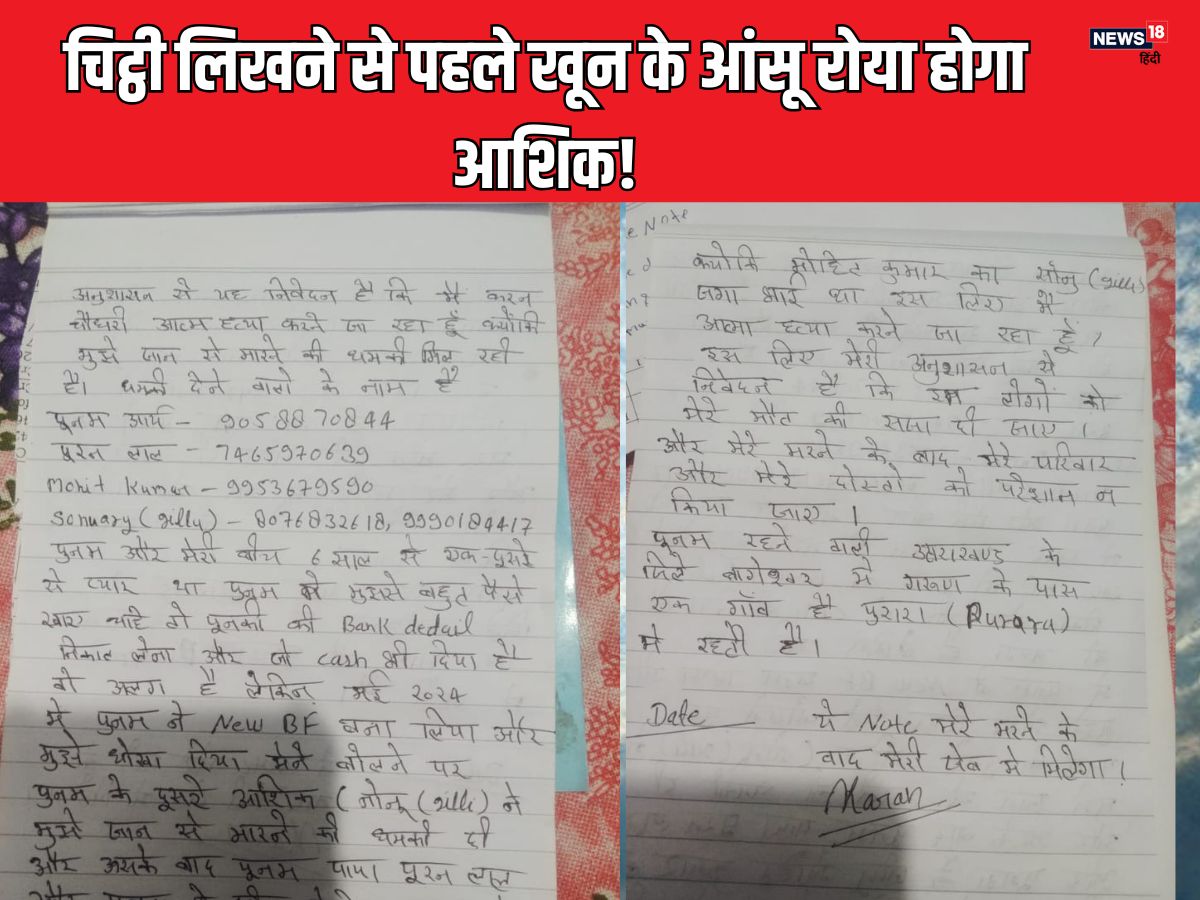 चिट्ठी लिखने से पहले खून के आंसू रोया होगा
आशिक!
NEWS 18
हिंदी
अनुशासन से यह निवेदन है कि मैं करन
चौधरी आत्म हत्या करने जा रहा हूँ क्योंकि
मुझे जान से मारने की धमकी मिल रही
है। धमकी देने वालो के नाम है
पूनम आर्य - 9058870844
पूरन लाल - 7465970639
Mohit Kumar - 9953679590
Sonuary (gilly) - 8076832618, 9990184417
पुनम और मेरी बीच 6 साल से एक-दूसरे
से प्यार था पुनम ने मुझसे बहुत पैसे
खाए चाहे तो पूनकी की Bank dedail
निकाल लेना और जो cash भी दिया है
वो अलग है लेकिन मई 2024
मे पुनम ने New BF बना लिया और
मुझे धोखा दिया मेने बोलने पर
पुनम के दूसरे आशिक ( (gilli) ने
मुझे जान से मारने की धमकी दी
और उसके बाद पूनम पापा पूरन लाल
e Note
क्योकि मोहित कुमार का सोनु (gilli)
लगा भाई था इस लिए मै
आत्मा हत्या करने जा रहा हूँ।
इस लिए मेरी अनुशासन से
निवेदन है कि इन लोगों को
मेरे मौत की सजा दी जाए।
और मेरे मरने के बाद मेरे परिवार
और मेरे दोस्तो को परेशान न
किया जाए।
पूनम रहने वाली उत्तराखण्ड के
जिले बागेश्वर मे गरूण के पास
एक गाँव है पुरारा (Purara)
मे रहती है।
Date ये Note मेरे मरने के
बाद मेरी जेब मे मिलेगा।
Karan